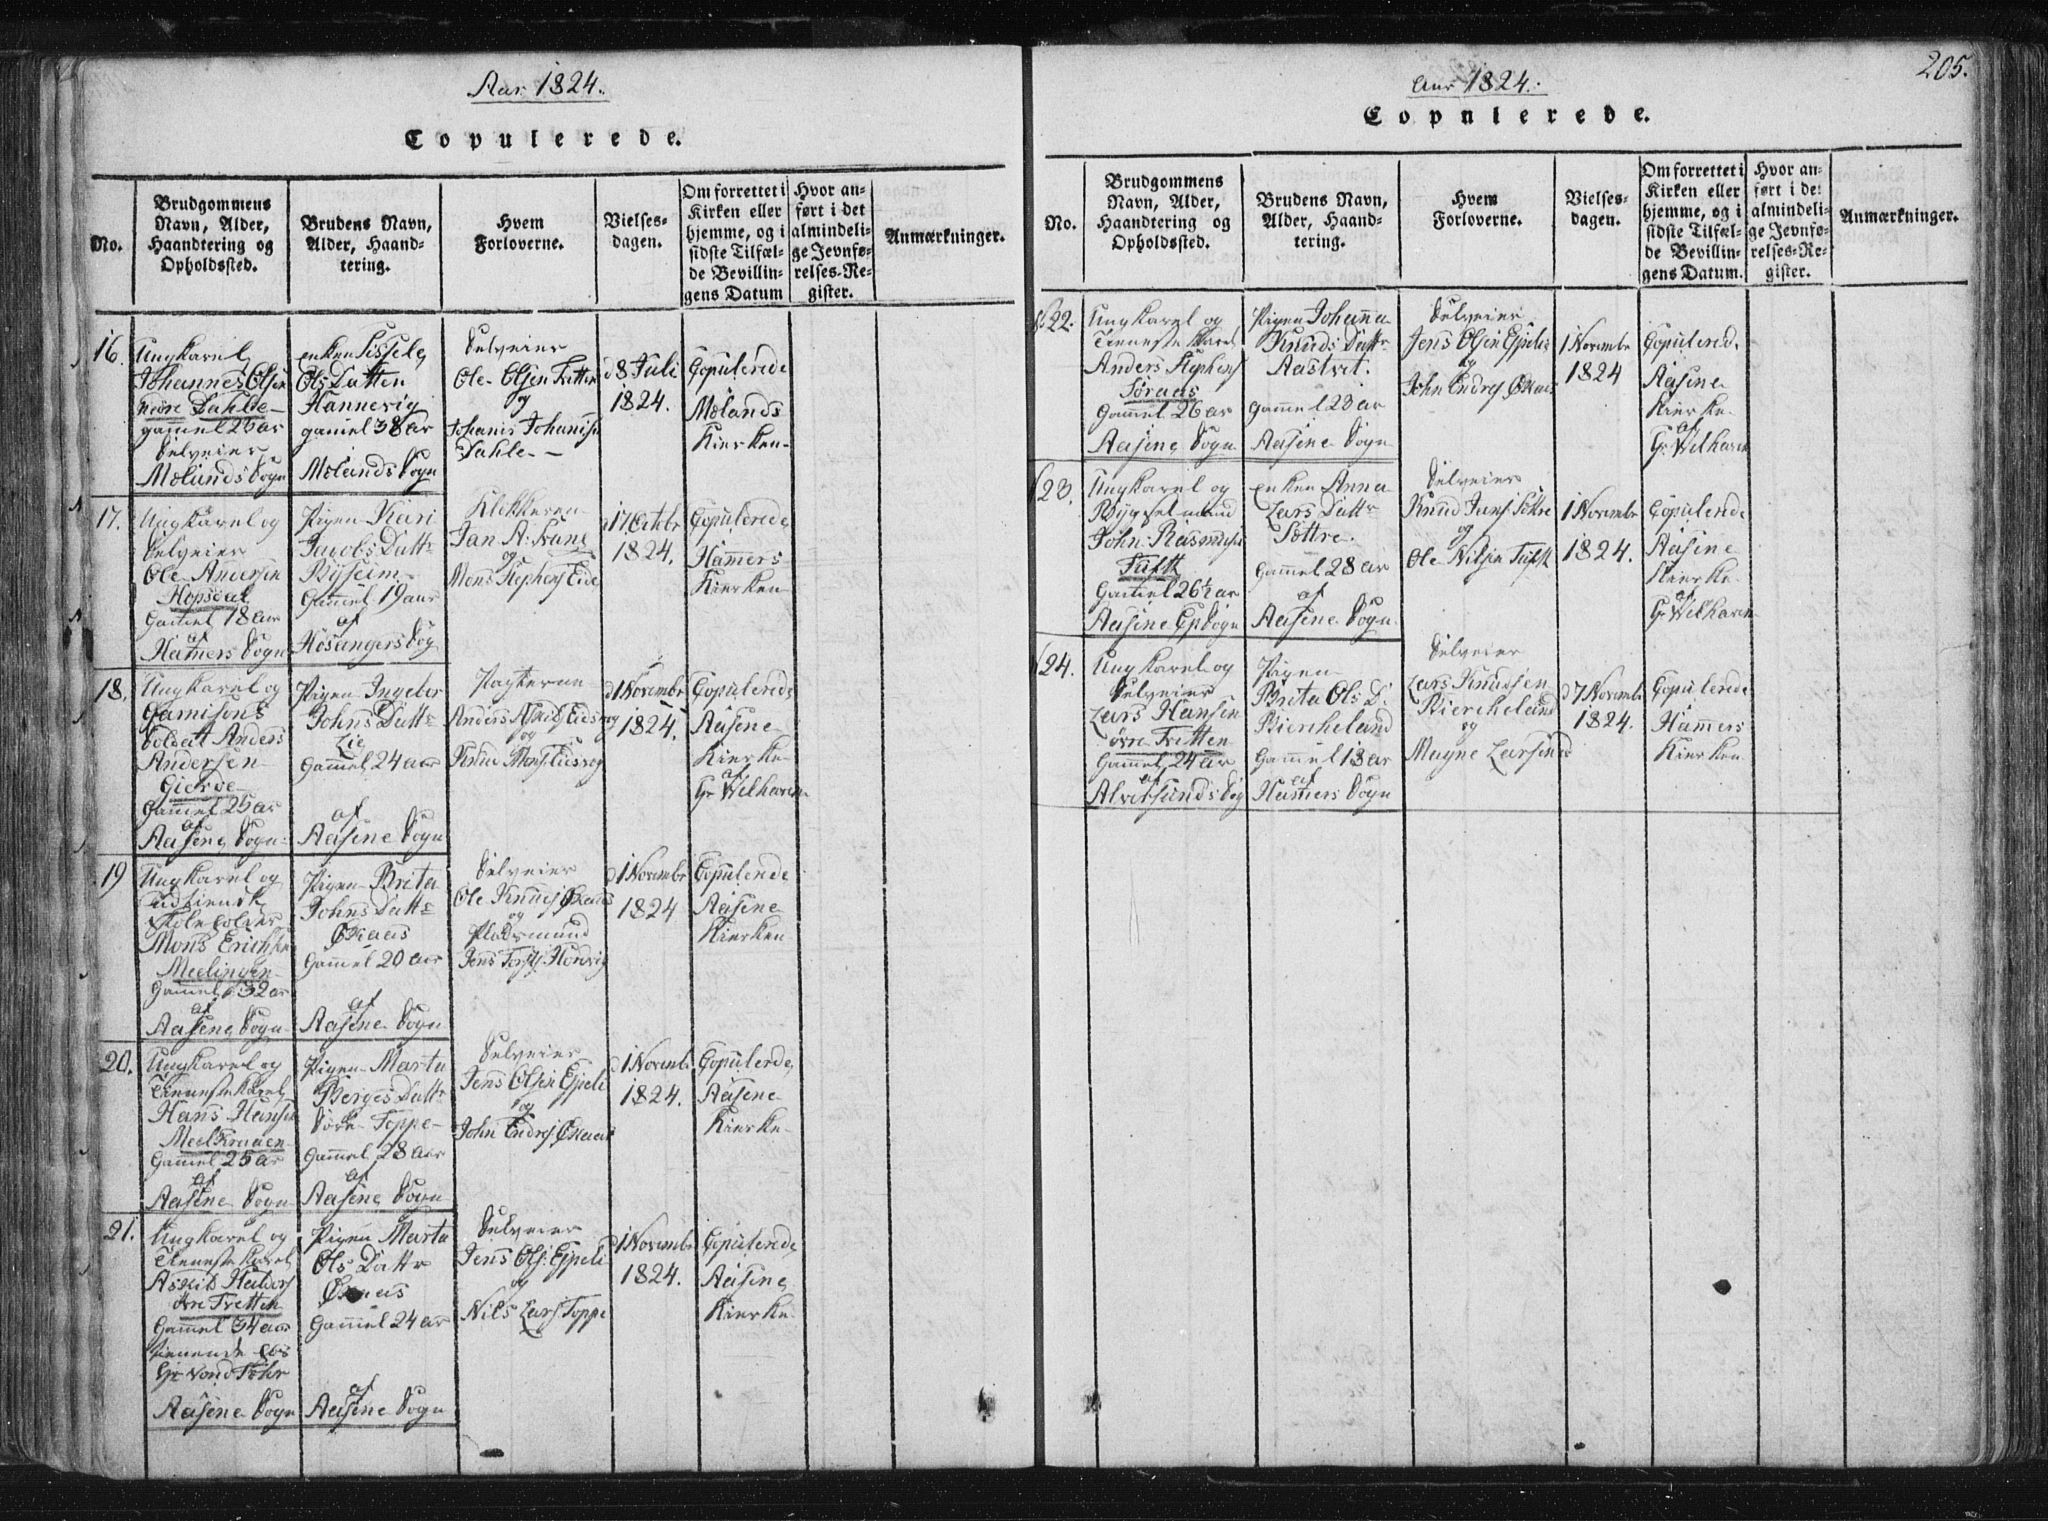 Aar 1824.
Copulerede.
No.
Brudgommens Navn, Alder, Haandtering og Opholdssted.
Brudens Navn, Alder, Haandtering.
Hvem Forloverne.
Vielsesdagen.
Om forrettet i Kirken eller hjemme, og i sidste Tilfælde Bevillingens Datum
Hvor anført i det almindelige Jevnførelses-Register.
Anmærkninger.
16.
Ungkarel
Johannes Olsen
Dahle
gammel 25 ar
Selveier
Mælands Sogn
enken Sissele
Ols Datten
Hannevig
gamel 38 ar
Mælands Sogn
Selveier
Ole Olsen Fretten
og
Johanis Johanisen
Dahle
d 8 Juli
1824.
Copulerede
Mælands
Kierken
17.
Ungkarel og
Selveier
Ole Andersen
Hopsdal
Gamel 18 aar
af
Hamers Sogn
Pigen Kari
Jacobs Datter
Gammel 19 aar
af
Hosangers Sog
Klokkeren
Jan A:
og
Mons Stephens Eide
d 17 Octobr
1824.
Copulerede
Hamers
Kierken
18.
Ungkarel og
Garnisons
Soldat Anders
Andersen
Gierde
Gammel 25 ar
af
Aasene Sogn
Pigen Ingebor
Johns Datter
Lie
Gammel 24 aar
af
Aasene Sogn
Pagterne
Anders
og
Knud Mons
d 1 Novembr
1824.
Copulerede
Aasene
Kierke
af
Hr Welhaven
19
Ungkarel og
Mons Erichsen
Meelingen
Gammel 32 ar
af
Aasene Sogn
Pigen Brita
Johns Datter
Øknaas
Gammel 20 aar
af
Aasene Sogn
Selveier
Ole Knuds Øknaas
og
Pladsmand
Jens
d 1 Novembr
1824.
Copulerede
Aasene
Kierken
20.
Ungkarel og
Tieneste Karel
Hans Hansen
Meelkraaen
Gammel 25 ar
af
Aasene Sogn
Pigen Marta
Børges Datter
Søre Toppe
Gammel 28 aar
af
Aasene Sogn
Selveier
Jens Olsen Espeli
og
John Endres Øknaas
d 1 Novembr
1824.
Copulerede
Aasene
Kierke
21.
Ungkarel og
Tieneste Karel
Askild Haldors
Øvre Fretten
Gammel 34 aar
tienende hos
Aasene Sogn
Pigen Marta
Ols Datter
Øknaas
Gammel 24 ar
af
Aasene Sogn
Selveier
Jens Ols: Espeli
og
Nils Lars Toppe
d 1 Novembr
1824.
Copulerede
Aasene
Kierke
205.
Aar 1824.
Copulerede.
No.
Brudgommens Navn, Alder, Haandtering og Opholdssted.
Brudens Navn, Alder, Haandtering.
Hvem Forloverne.
Vielsesdagen.
Om forrettet i Kirken eller hjemme, og i sidste Tilfælde Bevillingens Datum.
Hvor anført i det almindelige Jevnførelses-Register.
Anmærkninger.
22.
Ungkarel og
Tieneste Karel
Anders Stephens
Søraas
Gammel 26 ar
Aasene Sogn
Pigen Johanna
Knuds Datter
Aastvet.
Gammel 23 ar
Aasene Sogn
Selveier
Jens Olsen Espeli
og
John Endres Øknaas
1 Novembr
1824
Copulerede
Aasene
Kierke
af
Hr Welhaven
23.
Ungkarel og
Bygselmand
John Rasmusen
Tufte
Gamel 26½ ar
Aasene Sogn
enken Anna
Lars Datter
Sættre.
Gammel 28 ar
af
Aasene Sogn
Selveier
Knud Jens Sættre
og
Ole Nilsen Tufte
1 Novembr
1824.
Copulerede
Aasene
Kierke
af
Hr Welhaven
24.
Ungkarel og
Selveier
Lars Hansen
øvre Fretten
Gammel 24 ar
af
Alversunds Sog
Pigen
Brita Ols D.
Biercheland
Gammel 18 ar
af
Hamers Sogn
Selveier
Lars Knudsen
Biercheland
og
Magne Larsen
d 7 Novembr
1824.
Copulerede
Hamers
Kierken